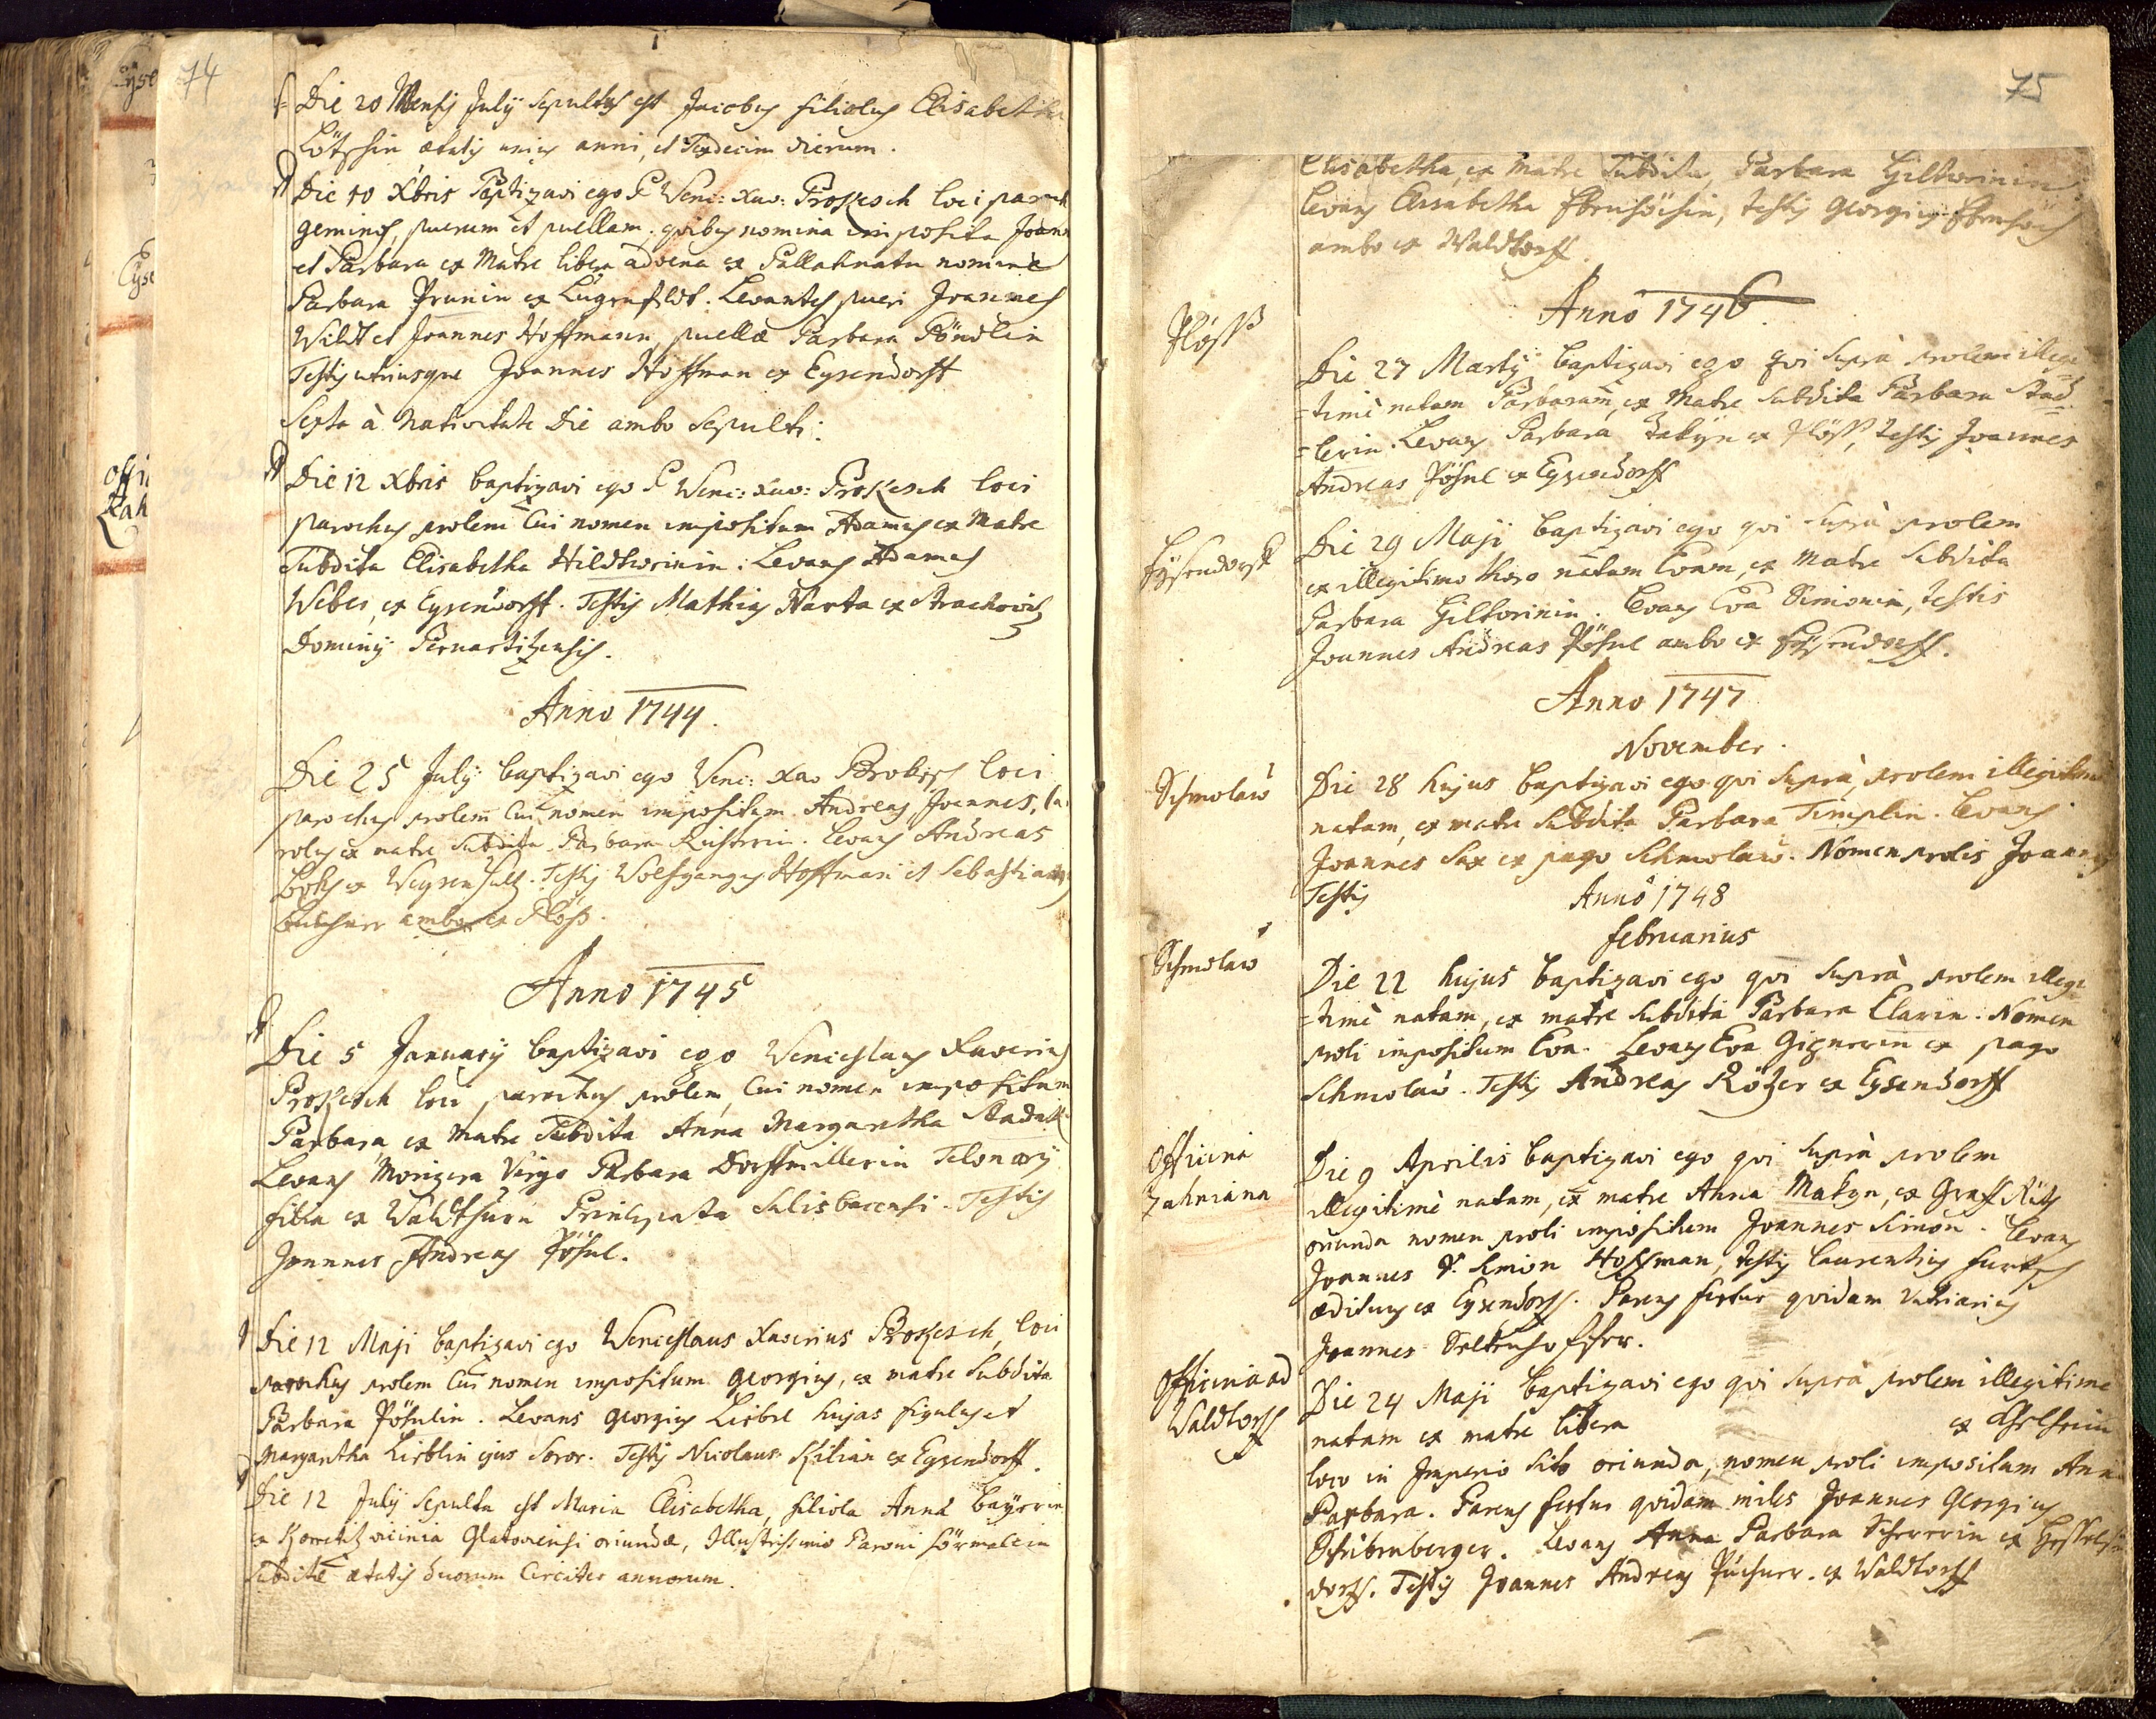 74
Die 20 Mensis Julÿ sepultus est Jacobus filiolus Elisabethae
Lötzhin ætatis unius anni, et Tredecim dierum.
Die 10 Xbris Baptizavi ego P. Wenc: Xav: Prokesch loci paroch
geminos, puerum et puellam. quibus nomina imposita Joann
et Barbara ex Matre libera advena ex Pallatinatu nomine
Barbara Prunin ex Lugenfeldt. Levantes pueri Joannes
Wildt et Joannes Hoffmann, puellæ Barbara Pöndlin
Testis utriusque Joannes Hoffman ex Eysendorff
Sexta à Nativitate Die ambo Sepulti.
Die 12 Xbris baptizavi ego P. Wenc: Xav: Prokesch loci
parochus prolem Cui nomen impositum Adamus ex Matre
Subdita Elisabetha Hildtworinin: Levans Adamus
Weber, ex Eysendorff. Testis Mathias Warta ex Strachowitz
Dominÿ Pernartizensis.
Anno 1744.
Die 25 Julÿ baptizavi ego Wenc: Xav Brokesch loci
parochus prolem Cui nomen impositum Andreas Joannes,
ex matre Subdita Barbara Richterin. Levans Andreas
ex Weysensultz. Testis Wolfgangus Hoffman et Sebastianus
ambo ex Plöss.
Anno 1745
Die 5 Januarÿ baptizavi ego Wenceslaus Xaverius
Prokesch loci parochus prolem, Cui nomen impositum
Barbara, ex Matre Subdita Anna Margaretha
Levans Morigera Virgo Barbara Dorffmillerin Telonarÿ
filia ex Waldthurn Principatu Sulisbacensi. Testis
Joannes Andreas Pöhnl.
Die 12 Maji baptizavi ego Wenceslaus Xaverius Prokesch, loci
parochus prolem Cui nomen impositum Georgius, ex matre Subdita
Barbara Pöhnlin. Levans Georgius Liebel hujas figulus et
Margaretha Lieblin ejus Soror. Testis Nicolaus Kilian ex Eysendorff.
Die 12 Julÿ Sepulta est Maria Elisabetha, filiola Anna bayerin
ex vicinia Glatoviensi oriundæ, Illustrissimo Baroni
Subditæ ætatis duorum Circiter annorum.
75
Elisabetha, ex Matre Subdita Barbara Hiltworinin
Levans Elisabetha Ebenhöchin, testis Georgius Ebenhöch
ambo ex Waldtorff.
Anno 1746.
Plöss
Die 27 Martÿ baptizavi ego qui suprà prolem illegi-
=timè natam Barbaram, ex Matre Subdita Barbara Stad=
=lerin. Levans Barbara ex Plöss, testis Joannes
Andreas Pöhnl ex Eysendorff
Eysendorff
Die 29 Maji baptizavi ego qui suprà prolem
ex illegitimo thoro natam Evam, ex Matre Subdita
Barbara Hiltworinin. Levans Eva Simonin, testis
Joannes Andreas Pöhnl ambo ex Eysendorff.
Anno 1747
November.
Schmolaw
Die 28 hujus baptizavi ego qui suprà, prolem illegitimè
natam, ex matre subdita Barbara Timplin. Levans
Joannes Sax ex pago Schmolaw. Nomen prolis Joannes
Testis
Anno 1748
februarius
Schmolaw
Die 22 hujus baptizavi ego qui suprà prolem illegi
=timè natam, ex matre subdita Barbara Clarin. Nomen
proli impositum Eva. Levans Eva Gignerin ex pago
Schmolaw. Testis Andreas Rötzer ex Eysendorff
Officina
Zahniana
Die 9 Aprilis baptizavi ego qui suprà prolem
illegitimè natam, ex matre Anna Makyn, ex
oriunda nomen proli impositum Joannes Simon. Levans
Joannes Simon Hoffman, testis Laurentius
ædituus ex Eysendorff. Parens fertur quidam Vitriarius
Joannes
Officina ad
Waldtorff
Die 24 Maji baptizavi ego qui suprà prolem illegitime
natam ex matre libera ex
loco in Imperio sito oriunda, nomen proli impositum Anna
Barbara. Parens fertur quidam miles Joannes Georgius
Levans Anna Barbara Schererin ex
dorff. Testis Joannes Andreas Püchner. ex Waldtorff